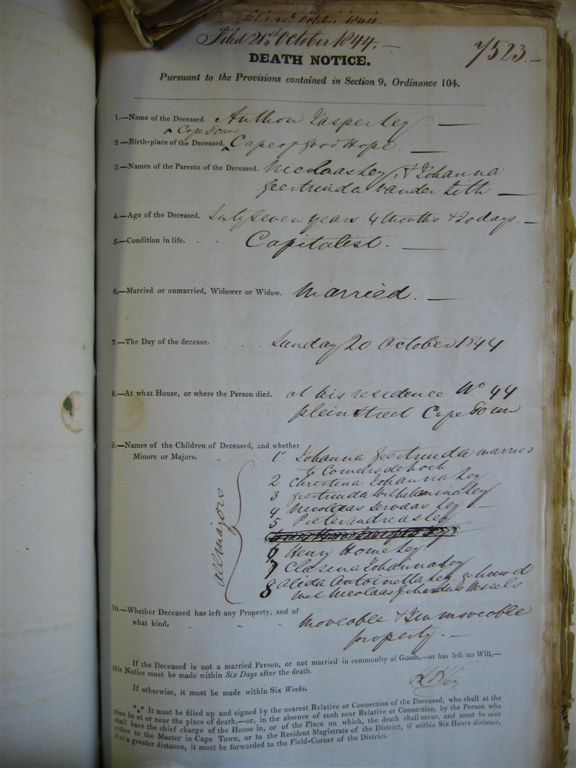 Filed 21st October 1844.—
7523.—
DEATH NOTICE.
Pursuant to the Provisions contained in Section 9, Ordinance 104.
1.—Name of the Deceased Anthon Jasper Ley. —
Cape Town
2—Birth-place of the Deceased, Cape of Good Hope —
3.—Names of the Parents of the Deceased. Nicolaas Ley, & Johanna
Geertruida vander Lith —
4.—Age of the Deceased. Sixty Seven years 4 Months & 20 days. —
5.—Condition in life. Capitalist. —
6.—Married or unmarried, Widower or Widow. Married. —
7.—The Day of the decease. Sunday 20 October 1844
8.—At what House, or where the Person died. at his residence No 44
plein Street Cape Town
9.—Names of the Children of Deceased, and whether
Minors or Majors.
all majors
1 Johanna Geertruida married
to de Kock
2 Christina Johanna Ley
3 Geertruida Wilhelmina Ley
4 Nicolaas Servaas Ley
5 Pieter Andreas Ley
6 Henry Home Ley
7 Johanna Ley
8 Alida Antoinetta Ley gehuwd
met Nicolaas
10.—Whether Deceased has left any Property, and of
what kind. Moveable & Immoveable
property. —
If the Deceased is not a married Person, or not married in community of Goods,—or has left no Will,—
this Notice must be made within Six Days after the death.
If otherwise, it must be made within Six Weeks.
*** It must be filled up and signed by the nearest Relative or Connection of the Deceased, who shall at the
time be at or near the place of death,—or, in the absence of such near Relative or Connection, by the Person who
shall have the chief charge of the House in, or of the Place on which, the death shall occur, and must be sent
either to the Master in Cape Town, or to the Resident Magistrate of the District, if within Six Hours distance,
if at a greater distance, it must be forwarded to the Field-Cornet of the District.